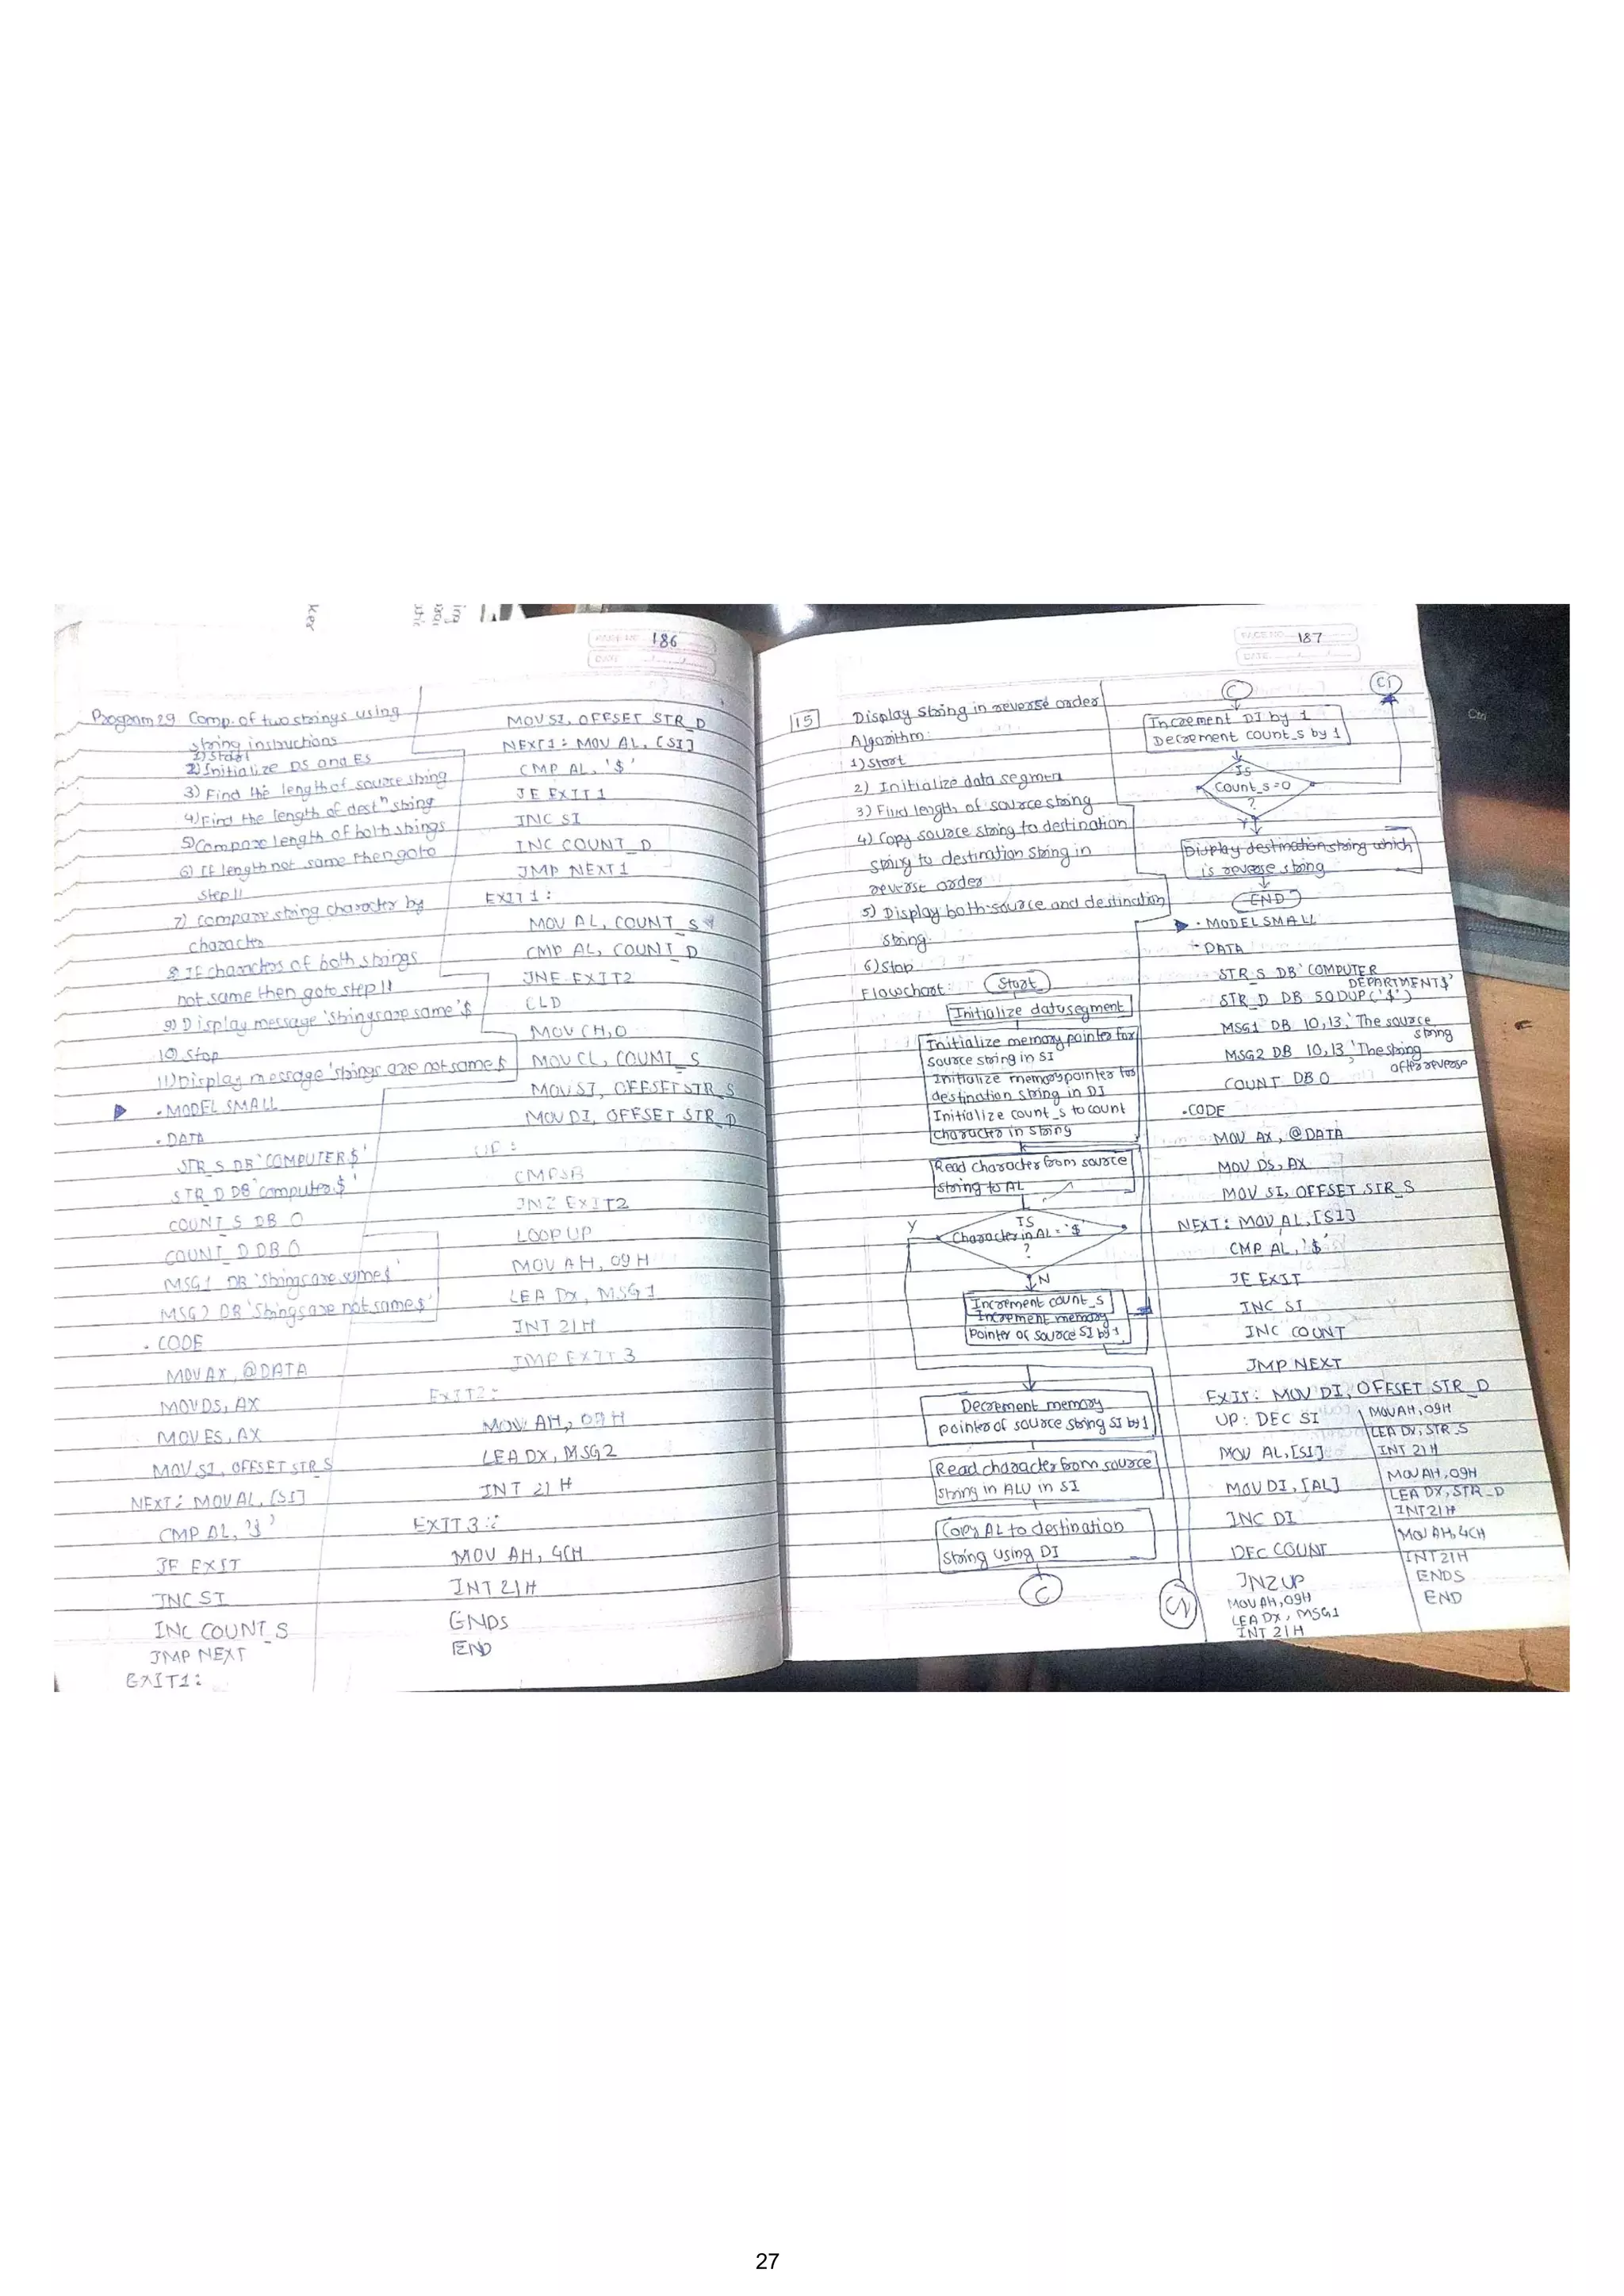 186
Program 29 Comp. of two strings using
string instructions
1) Start
2) Initialize DS and ES
3) Find the length of source string
4) Find the length of destn string
5) Compare length of both strings
6) If length not same then goto
step 11
7) Compare string character by
character
8) If characters of both strings
not same then goto step 11
9) Display message 'Strings are same'$
10) Stop
11) Display message 'strings are not same$
.MODEL SMALL
.DATA
STR_S DB 'COMPUTER$'
STR_D DB 'computer$'
COUNT_S DB 0
COUNT_D DB 0
MSG1 DB 'Strings are same$'
MSG2 DB 'Strings are not same$'
.CODE
MOV AX, @DATA
MOV DS, AX
MOV ES, AX
MOV SI, OFFSET STR_S
NEXT: MOV AL, [SI]
CMP AL, '$'
JE EXIT
INC SI
INC COUNT_S
JMP NEXT
EXIT1:
MOV SI, OFFSET STR_D
NEXT1: MOV AL, [SI]
CMP AL, '$'
JE EXIT1
INC SI
INC COUNT_D
JMP NEXT1
EXIT1:
MOV AL, COUNT_S
CMP AL, COUNT_D
JNE EXIT2
CLD
MOV CH, 0
MOV CL, COUNT_S
MOV SI, OFFSET STR_S
MOV DI, OFFSET STR_D
UP:
CMPSB
JNZ EXIT2
LOOP UP
MOV AH, 09H
LEA DX, MSG1
INT 21H
JMP EXIT3
EXIT2:
MOV AH, 09H
LEA DX, MSG2
INT 21H
EXIT3:
MOV AH, 4CH
INT 21H
ENDS
END
187
15 Display String in reverse order
Algorithm:
1) Start
2) Initialize data segment
3) Find length of source string
4) Copy source string to destination
string to destination string in
reverse order
5) Display both source and destination
string
6) Stop
Flowchart:
Start
Initialize data segment
Initialize memory pointer for
source string in SI
Initialize memory pointer for
destination string in DI
Initialize count_s to count
character in string
Read character from source
string to AL
IS
Character in AL = '$'
?
Y
N
Increment count_s
Increment memory
pointer of source SI by 1
Decrement memory
pointer of source string SI by 1
Read character from source
string in ALU in SI
Copy AL to destination
string using DI
C
C1
C
C1
Increment DI by 1
Decrement count_s by 1
IS
Count_s=0
?
Y
Display destination string which
is reverse string
END
.MODEL SMALL
.DATA
STR_S DB 'COMPUTER
DEPARTMENT$'
STR_D DB 50DUP('$')
MSG1 DB 10,13,'The source
string
MSG2 DB 10,13,'The string
after reverse
COUNT DB 0
.CODE
MOV AX, @DATA
MOV DS, AX
MOV SI, OFFSET STR_S
NEXT: MOV AL,[SI]
CMP AL, '$'
JE EXIT
INC SI
INC COUNT
JMP NEXT
EXIT: MOV DI, OFFSET STR_D
UP: DEC SI
MOV AL,[SI]
MOV DI, [AL]
INC DI
DEC COUNT
JNZ UP
MOV AH,09H
LEA DX, MSG1
INT 21H
MOV AH,09H
LEA DX, STR_S
INT 21H
MOV AH,09H
LEA DX, STR_D
INT 21H
MOV AH, 4CH
INT 21H
ENDS
END
27